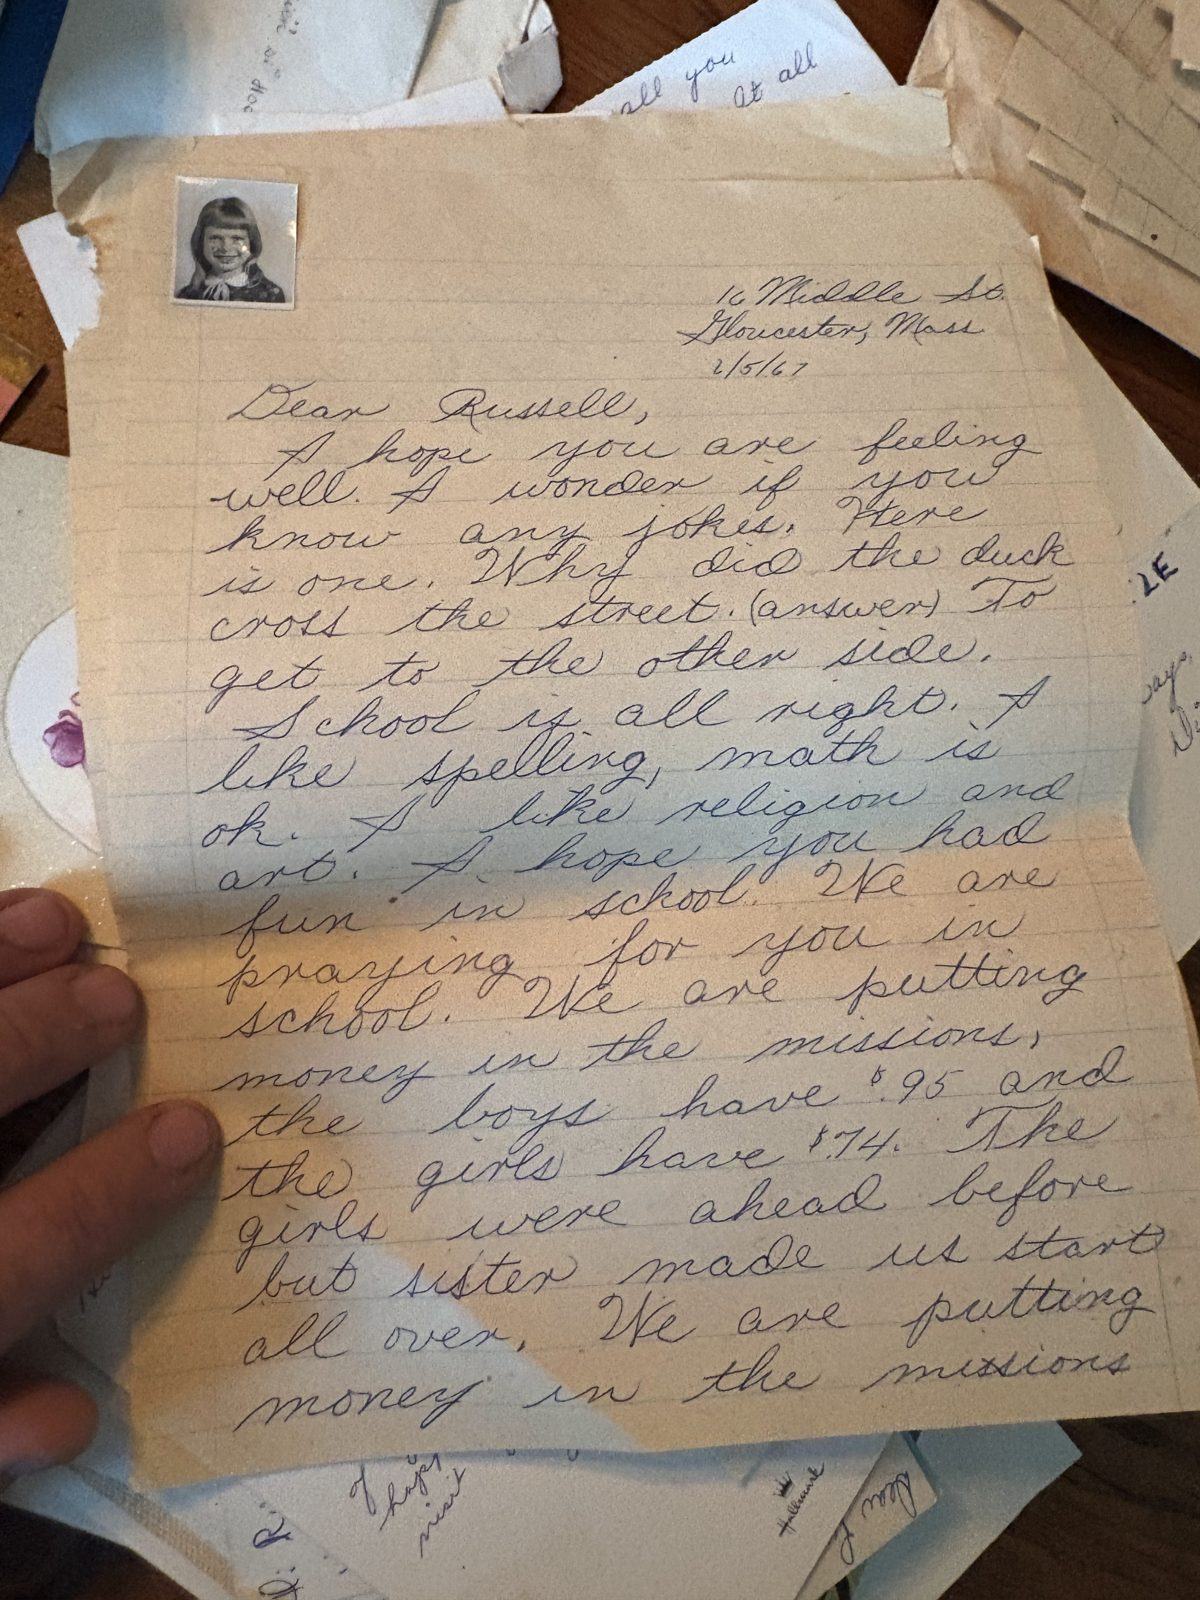 all you
At all
16 Middle St.
Gloucester, Mass
2/5/67
Dear Russell,
I hope you are feeling
well. I wonder if you
know any jokes. Here
is one. Why did the duck
cross the street. (answer) To
get to the other side.
School is all right. I
like spelling, math is
ok. I like religion and
art. I hope you had
fun in school. We are
praying for you in
school. We are putting
money in the missions,
the boys have $.95 and
the girls have $.74. The
girls were ahead before
but sister made us start
all over. We are putting
money in the missions
visit
Hallmark
Dear